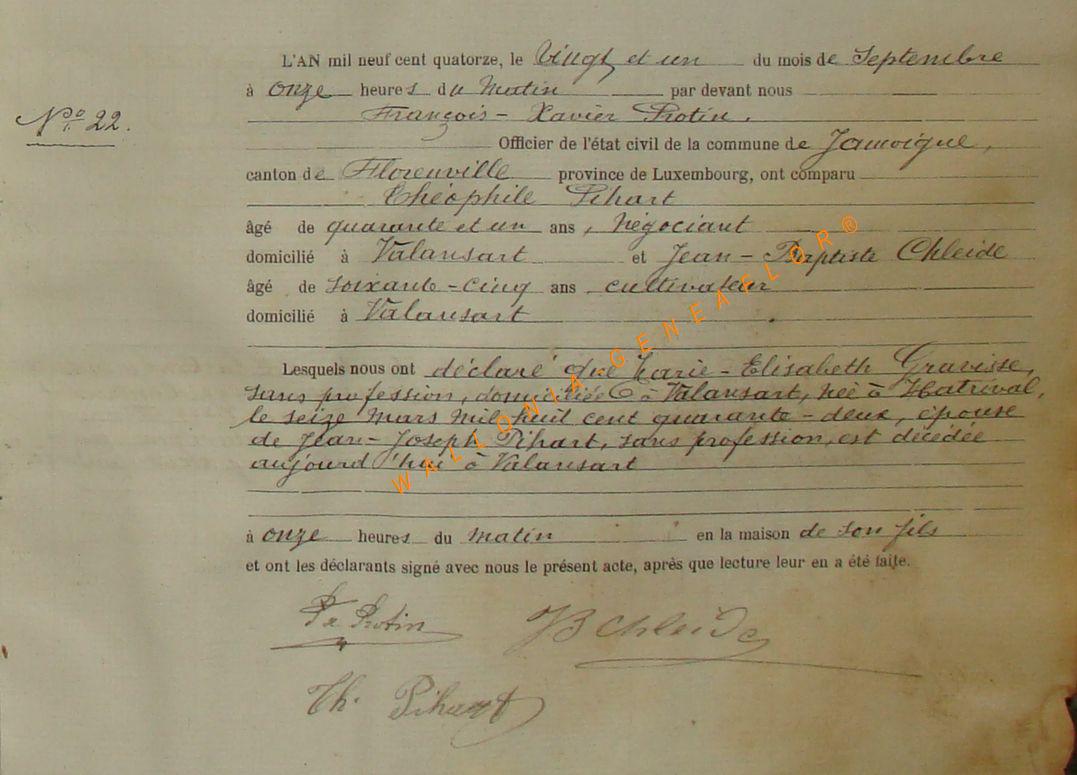 L'AN mil neuf cent quatorze, le Vingt et un du mois de Septembre
à onze heures du Matin par devant nous
Nº 22.
François-Xavier Protin.
Officier de l'état civil de la commune de Jamoigne,
canton de Florenville province de Luxembourg, ont comparu
Théophile Pihart
âgé de quarante et un ans, Négociant
domicilié à Valansart et Jean-Baptiste Chleide
âgé de soixante-cinq ans cultivateur
domicilié à Valansart
Lesquels nous ont déclaré que Marie-Elisabeth Gravisse,
sans profession, domiciliée à Valansart, née à Hatrival,
le seize mars mil huit cent quarante-deux, épouse
de Jean-Joseph Pihart, sans profession, est décédée
aujourd'hui à Valansart
à onze heures du matin en la maison de son fils
et ont les déclarants signé avec nous le présent acte, après que lecture leur en a été faite.
Fx Protin
JB Chleide
Th. Pihart
WALLONIA GENEAFLOR®